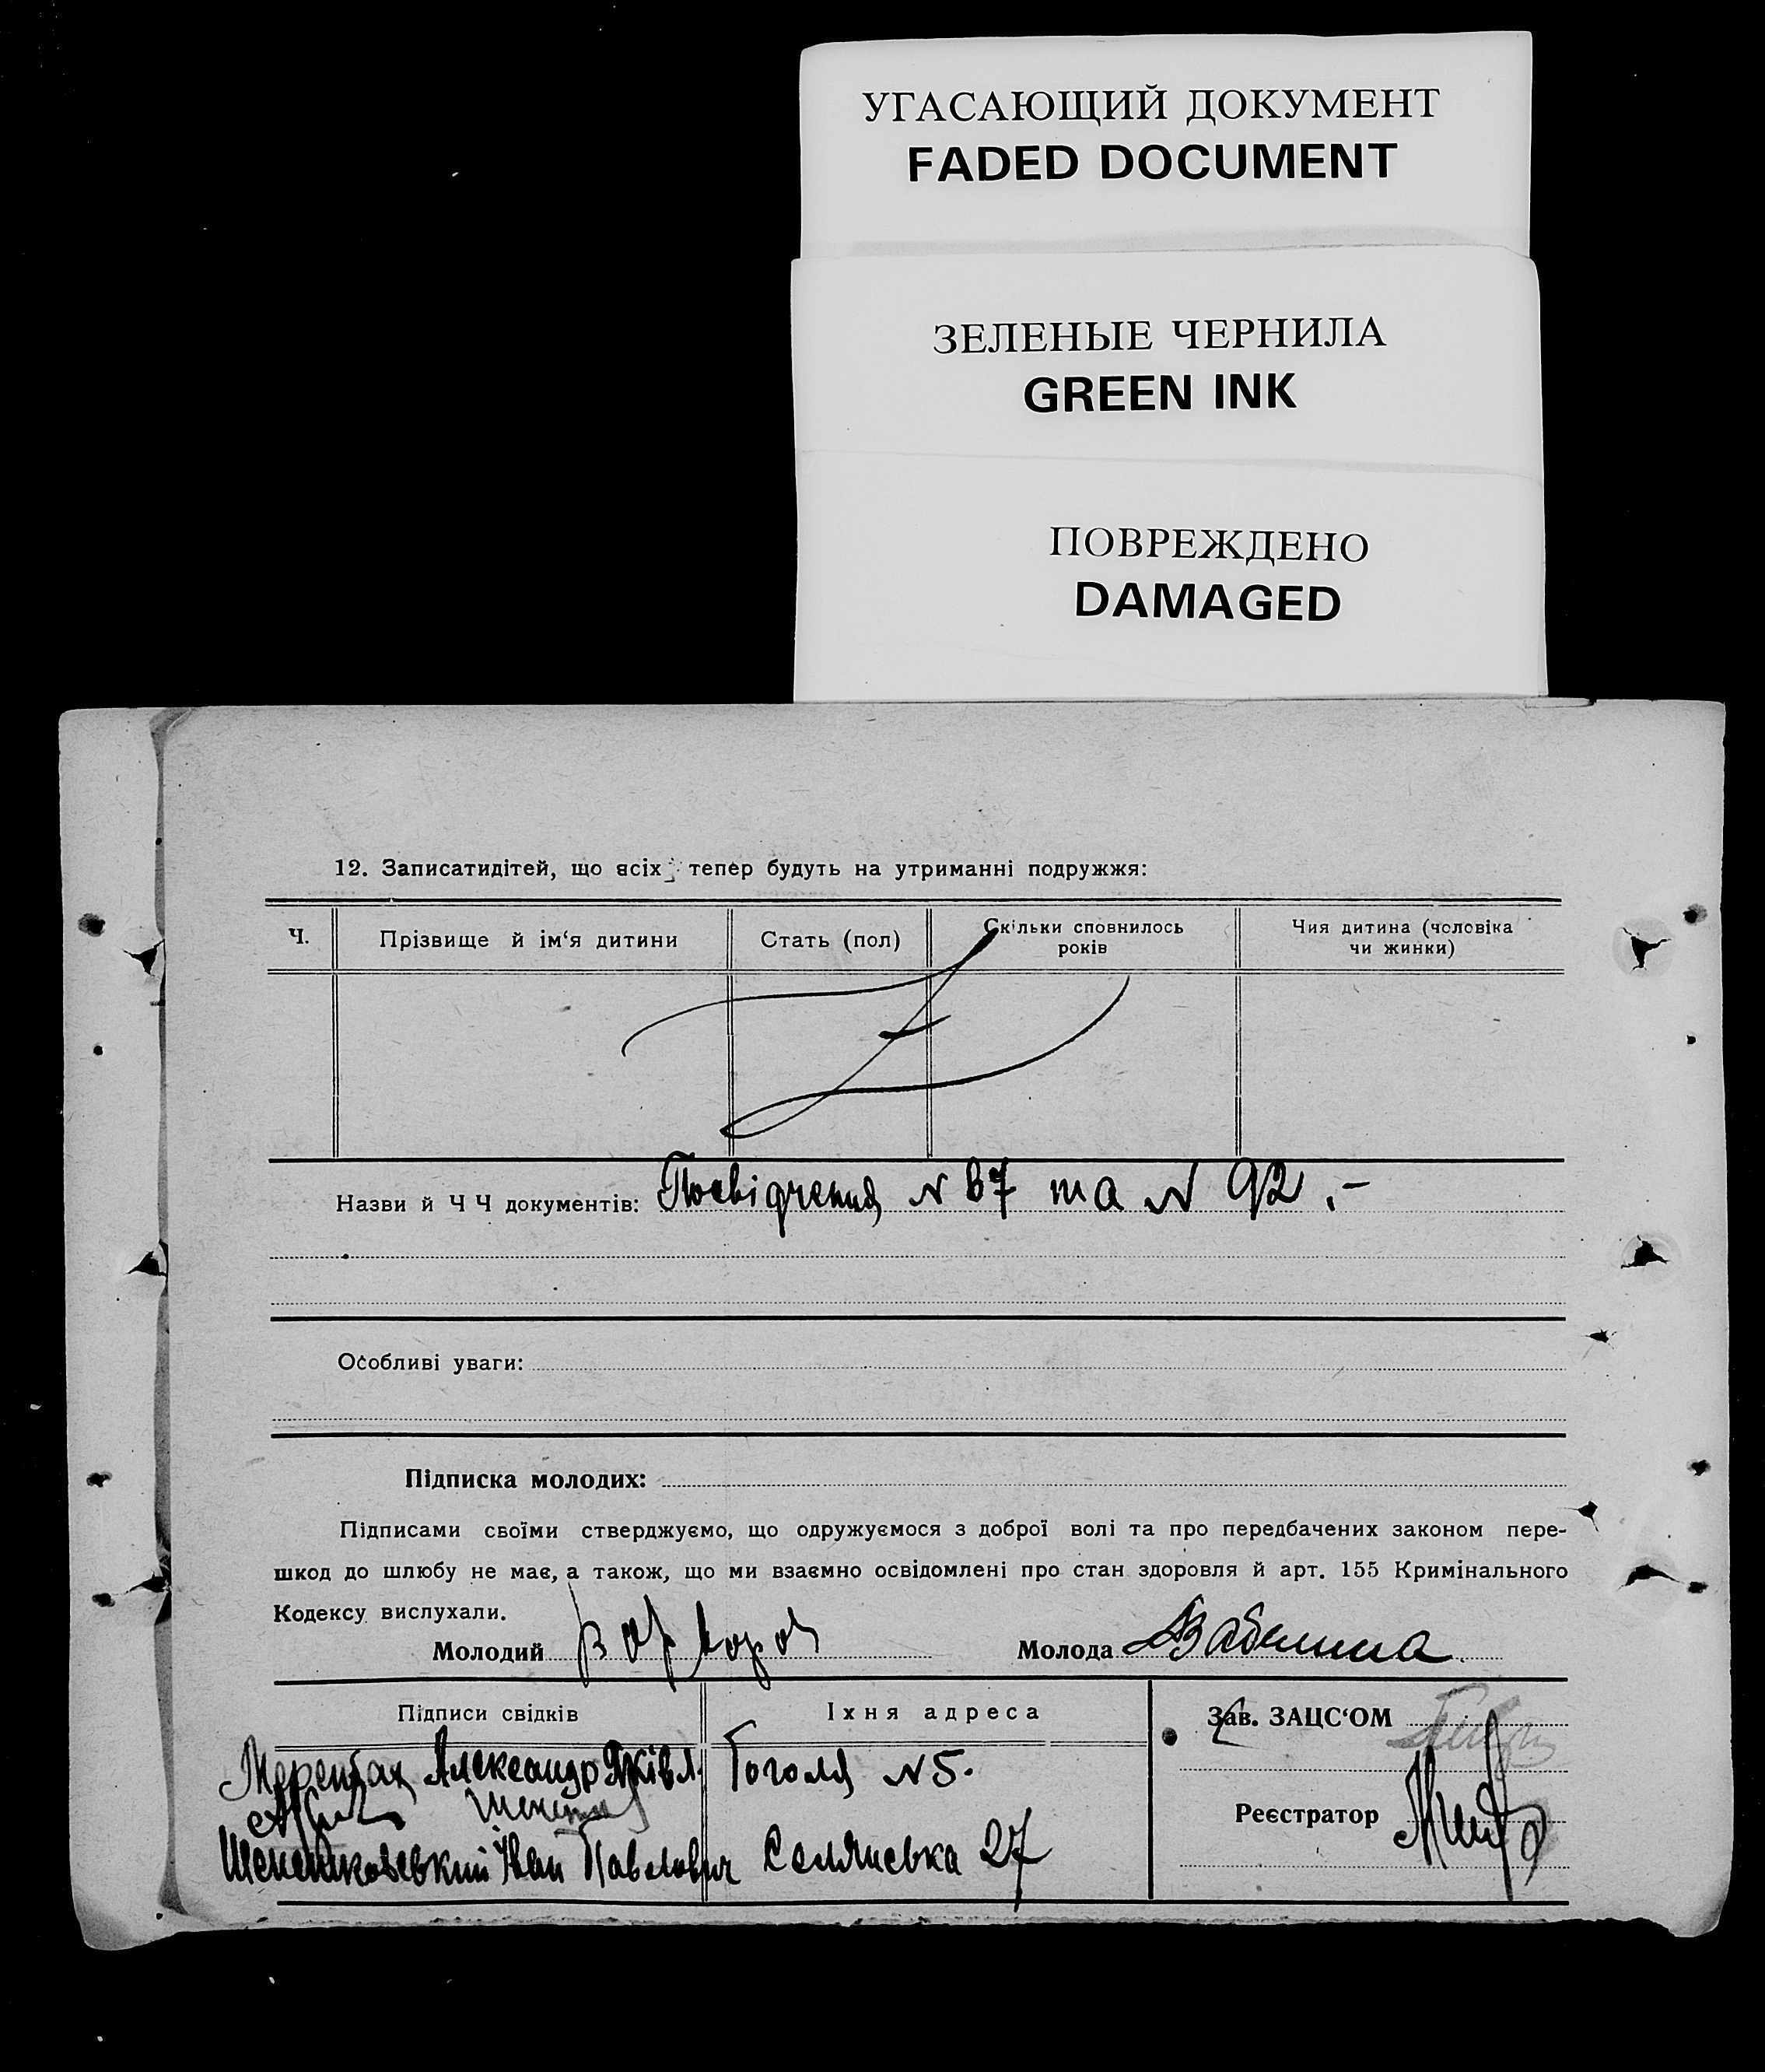 УГАСАЮЩИЙ ДОКУМЕНТ
FADED DOCUMENT
ЗЕЛЕНЫЕ ЧЕРНИЛА
GREEN INK
ПОВРЕЖДЕНО
DAMAGED
12. Записатидітей, що всіх тепер будуть на утриманні подружжя:
Ч. Прізвище й ім‘я дитини Стать (пол) Скільки сповнилось років Чия дитина (чоловіка чи жинки)
Назви й Ч Ч документів: Посвідчення N 87 та N 92.–
Особливі уваги:
Підписка молодих:
Підписами своїми стверджуємо, що одружуємося з доброї волі та про передбачених законом пере-
шкод до шлюбу не має, а також, що ми взаємно освідомлені про стан здоровля й арт. 155 Кримінального
Кодексу вислухали.
Молодий Молода
Підписи свідків Їхня адреса Зав. ЗАЦС‘ОМ
Александр Яківл. Гоголя N 5.
Реєстратор
Іван Павлович Селянська 27